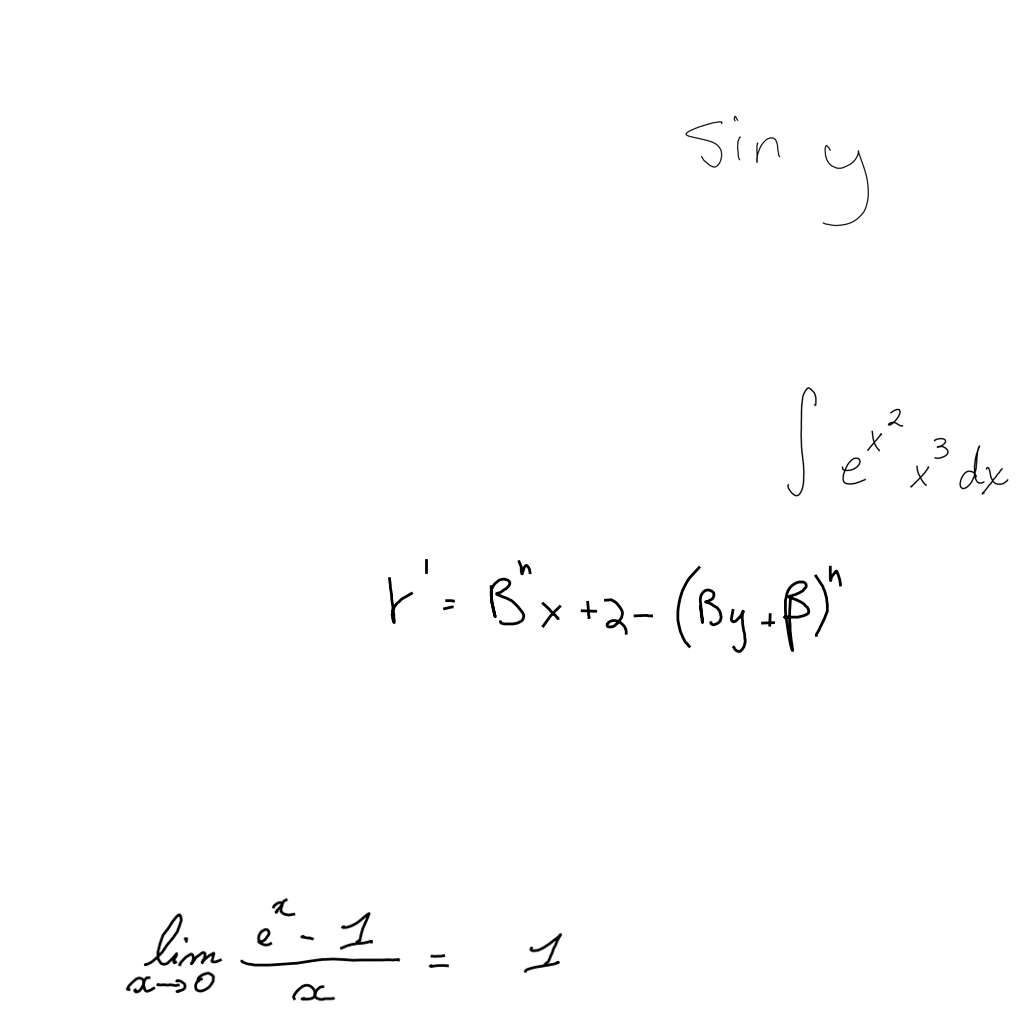 sin y
∫ e^{x^2} x^3 dx
r' = B^n x + 2 - (By + β)^n
lim_{x→0} \frac{e^x - 1}{x} = 1